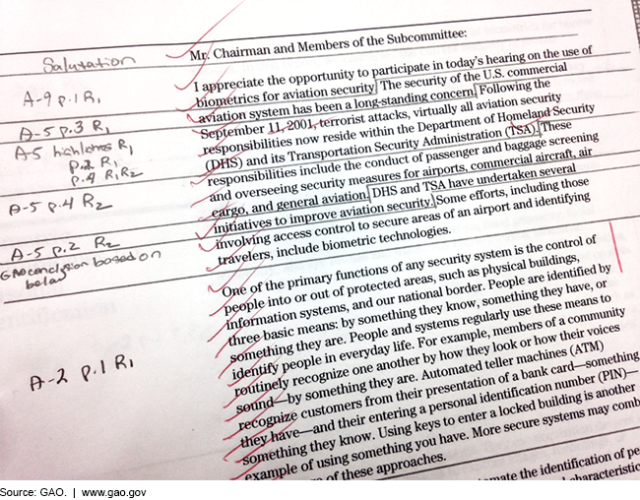 Salutation
Mr. Chairman and Members of the Subcommittee:
A-9 p.1 R1
A-5 p.3 R1
A-5 highlights R1
p.2 R1
p.4 R1R2
A-5 p.4 R2
A-5 p.2 R2
GAO conclusion based on
below
I appreciate the opportunity to participate in today's hearing on the use of
biometrics for aviation security. The security of the U.S. commercial
aviation system has been a long-standing concern. Following the
September 11, 2001, terrorist attacks, virtually all aviation security
responsibilities now reside within the Department of Homeland Security
(DHS) and its Transportation Security Administration (TSA). These
responsibilities include the conduct of passenger and baggage screening
and overseeing security measures for airports, commercial aircraft, air
cargo, and general aviation. DHS and TSA have undertaken several
initiatives to improve aviation security. Some efforts, including those
involving access control to secure areas of an airport and identifying
travelers, include biometric technologies.
A-2 p.1 R1
One of the primary functions of any security system is the control of
people into or out of protected areas, such as physical buildings,
information systems, and our national border. People are identified by
three basic means: by something they know, something they have, or
something they are. People and systems regularly use these means to
identify people in everyday life. For example, members of a community
routinely recognize one another by how they look or how their voices
sound—by something they are. Automated teller machines (ATM)
recognize customers from their presentation of a bank card—something
they have—and their entering a personal identification number (PIN)—
something they know. Using keys to enter a locked building is another
example of using something you have. More secure systems may comb
of these approaches.
mate the identification of pe
characteristic
Source: GAO. | www.gao.gov